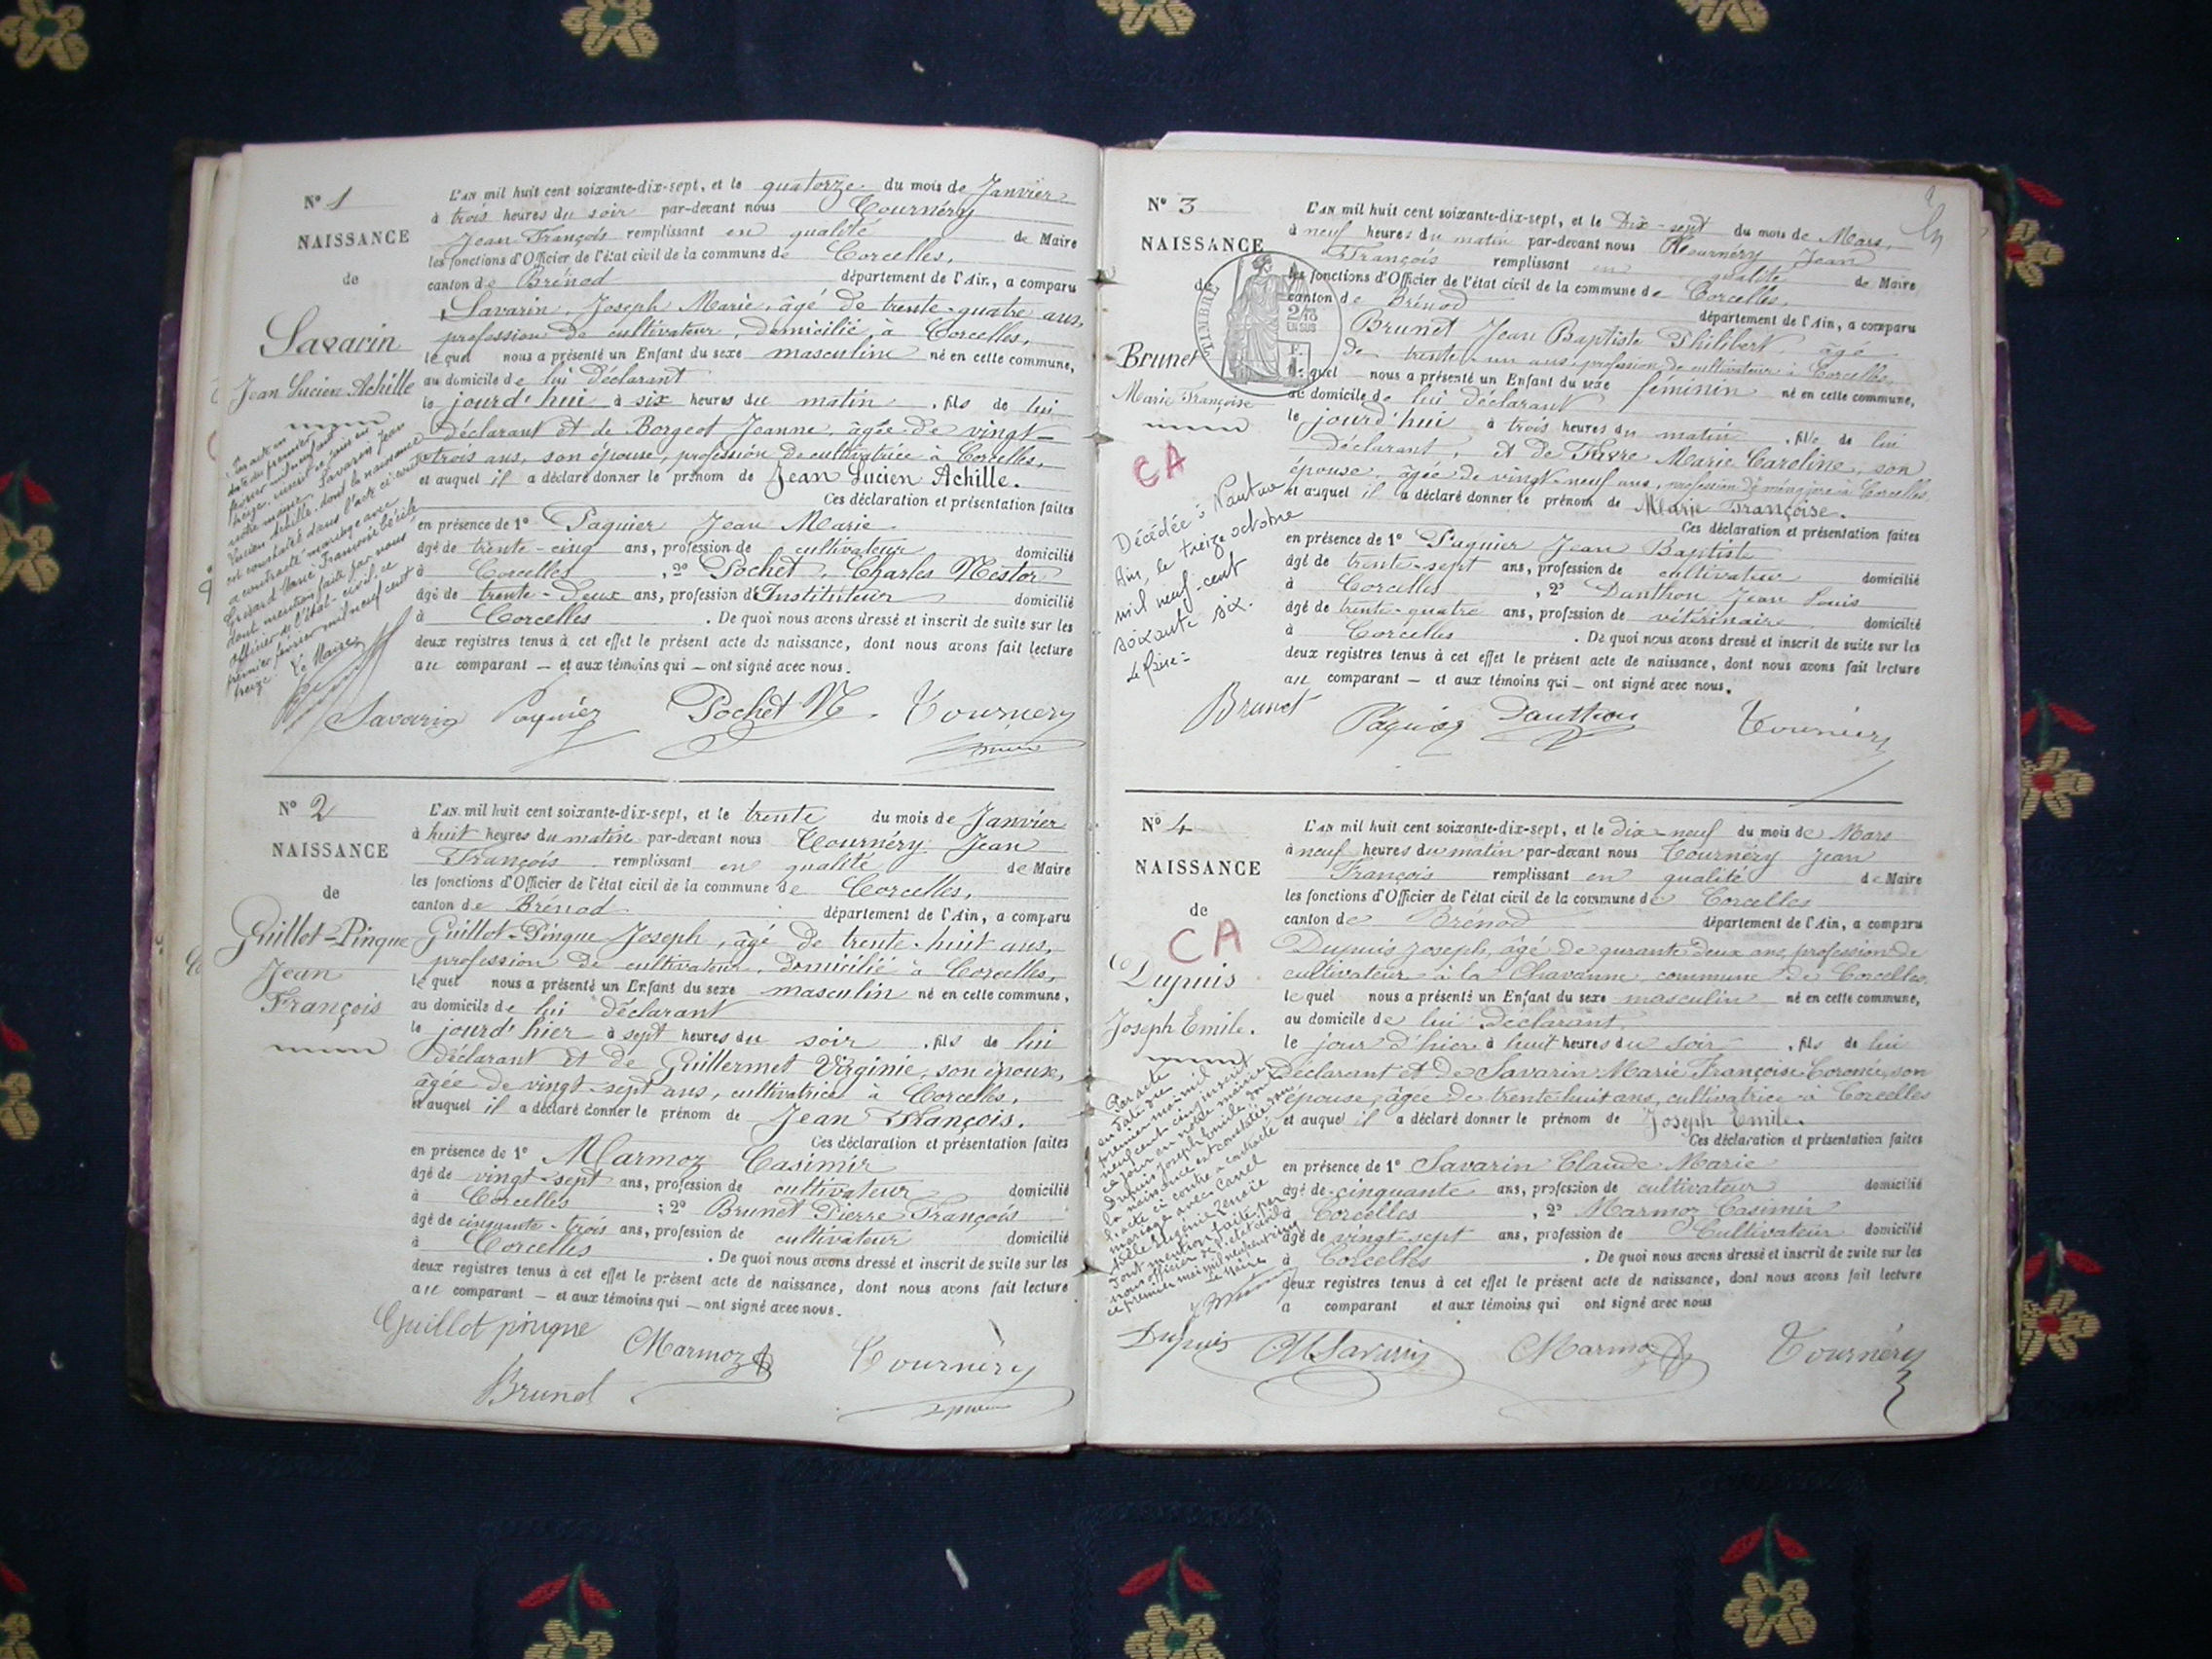 N° 1
NAISSANCE
de
Savarin
Jean Lucien Achille
L'AN mil huit cent soixante-dix-sept, et le quatorze du mois de Janvier
à trois heures du soir par-devant nous Tournéry
Jean François remplissant en qualité de Maire
les fonctions d'Officier de l'état civil de la commune de Corcelles,
canton de Brénod département de l'Ain, a comparu
Savarin, Joseph Marie, âgé de trente-quatre ans,
profession de cultivateur, domicilié à Corcelles,
lequel nous a présenté un Enfant du sexe masculin né en cette commune,
au domicile de lui déclarant
le jourd'hui à six heures du matin, fils de lui
déclarant et de Borgeot Jeanne, âgée de vingt-
trois ans, son épouse, profession de cultivatrice à Corcelles,
et auquel il a déclaré donner le prénom de Jean Lucien Achille.
Ces déclaration et présentation faites
en présence de 1° Paquier Jean Marie
âgé de trente-cinq ans, profession de cultivateur domicilié
à Corcelles, 2° Pochet, Charles Nestor
âgé de trente-deux ans, profession d'Instituteur domicilié
à Corcelles. De quoi nous avons dressé et inscrit de suite sur les
deux registres tenus à cet effet le présent acte de naissance, dont nous avons fait lecture
au comparant — et aux témoins qui — ont signé avec nous.
Par acte en
date du premier
février mil neuf cent
treize, inscrit ce jour en
notre mairie, Savarin Jean
Lucien Achille, dont la naissance
est constatée dans l'acte ci-contre
a contracté mariage avec
Marie Françoise
dont mention faite par nous
officier de l'état-civil, ce
premier février mil neuf cent
treize. Le Maire
Savarin Paquier Pochet N. Tournery
N° 2
NAISSANCE
de
Guillot-Pingue
Jean
François
L'AN mil huit cent soixante-dix-sept, et le trente du mois de Janvier
à huit heures du matin par-devant nous Tournéry Jean
François remplissant en qualité de Maire
les fonctions d'Officier de l'état civil de la commune de Corcelles,
canton de Brénod département de l'Ain, a comparu
Guillot-Pingue Joseph, âgé de trente-huit ans,
profession de cultivateur, domicilié à Corcelles,
lequel nous a présenté un Enfant du sexe masculin né en cette commune,
au domicile de lui déclarant
le jourd'hier à sept heures du soir, fils de lui
déclarant et de Guillermet Virginie, son épouse,
âgée de vingt-sept ans, cultivatrice à Corcelles,
et auquel il a déclaré donner le prénom de Jean François.
Ces déclaration et présentation faites
en présence de 1° Marmoz Casimir
âgé de vingt-sept ans, profession de cultivateur domicilié
à Corcelles; 2° Brunet Pierre François
âgé de cinquante-trois ans, profession de cultivateur domicilié
à Corcelles. De quoi nous avons dressé et inscrit de suite sur les
deux registres tenus à cet effet le présent acte de naissance, dont nous avons fait lecture
au comparant — et aux témoins qui — ont signé avec nous.
Guillot pingue Marmoz Tournéry
Brunet
N° 3
NAISSANCE
de
TIMBRE
Brunet
Marie Françoise
CA
L'AN mil huit cent soixante-dix-sept, et le Dix-sept du mois de Mars,
à neuf heures du matin par-devant nous Tournéry Jean
François remplissant en qualité de Maire
les fonctions d'Officier de l'état civil de la commune de Corcelles,
canton de Brénod département de l'Ain, a comparu
Brunet Jean Baptiste Philibert âgé
de trente-un ans, profession de cultivateur à Corcelles,
lequel nous a présenté un Enfant du sexe féminin né en cette commune,
au domicile de lui déclarant
le jourd'hui à trois heures du matin, fille de lui
déclarant, et de Favre Marie Caroline, son
épouse, âgée de vingt-neuf ans, profession de ménagère à Corcelles,
et auquel il a déclaré donner le prénom de Marie Françoise.
Ces déclaration et présentation faites
en présence de 1° Paquier Jean Baptiste
âgé de trente-sept ans, profession de cultivateur domicilié
à Corcelles, 2° Danthon Jean Louis
âgé de trente-quatre ans, profession de vétérinaire domicilié
à Corcelles. De quoi nous avons dressé et inscrit de suite sur les
deux registres tenus à cet effet le présent acte de naissance, dont nous avons fait lecture
au comparant — et aux témoins qui — ont signé avec nous.
Décédée à Nantua
Ain, le treize octobre
mil neuf-cent
soixante six.
Brunet Paquier Danthon Tournéry
N° 4
NAISSANCE
de
CA
Dupuis
Joseph Emile.
L'AN mil huit cent soixante-dix-sept, et le dix-neuf du mois de Mars
à neuf heures du matin par-devant nous Tournéry Jean
François remplissant en qualité de Maire
les fonctions d'Officier de l'état civil de la commune de Corcelles
canton de Brénod département de l'Ain, a comparu
Dupuis Joseph, âgé de quarante deux ans, profession de
cultivateur à la Chavanne, commune de Corcelles,
lequel nous a présenté un Enfant du sexe masculin né en cette commune,
au domicile de lui Déclarant,
le jour d'hier à huit heures du soir, fils de lui
Déclarant et de Savarin Marie Françoise, son
épouse, âgée de trente huit ans, cultivatrice à Corcelles
et auquel il a déclaré donner le prénom de Joseph Emile.
Ces déclaration et présentation faites
en présence de 1° Savarin Claude Marie
âgé de cinquante ans, profession de cultivateur domicilié
à Corcelles, 2° Marmoz Casimir
âgé de vingt-sept ans, profession de Cultivateur domicilié
à Corcelles. De quoi nous avons dressé et inscrit de suite sur les
deux registres tenus à cet effet le présent acte de naissance, dont nous avons fait lecture
a comparant et aux témoins qui ont signé avec nous
Par acte
en date du
premier mai mil
neuf cent cinq inscrit
ce jour en notre mairie
Dupuis Joseph Emile dont
la naissance est constatée dans
l'acte ci-contre a contracté
mariage avec
dont mention faite par
nous officier de l'état civil
ce premier mai mil neuf cent cinq
Le Maire
Dupuis CM Savarin Marmoz Tournéry